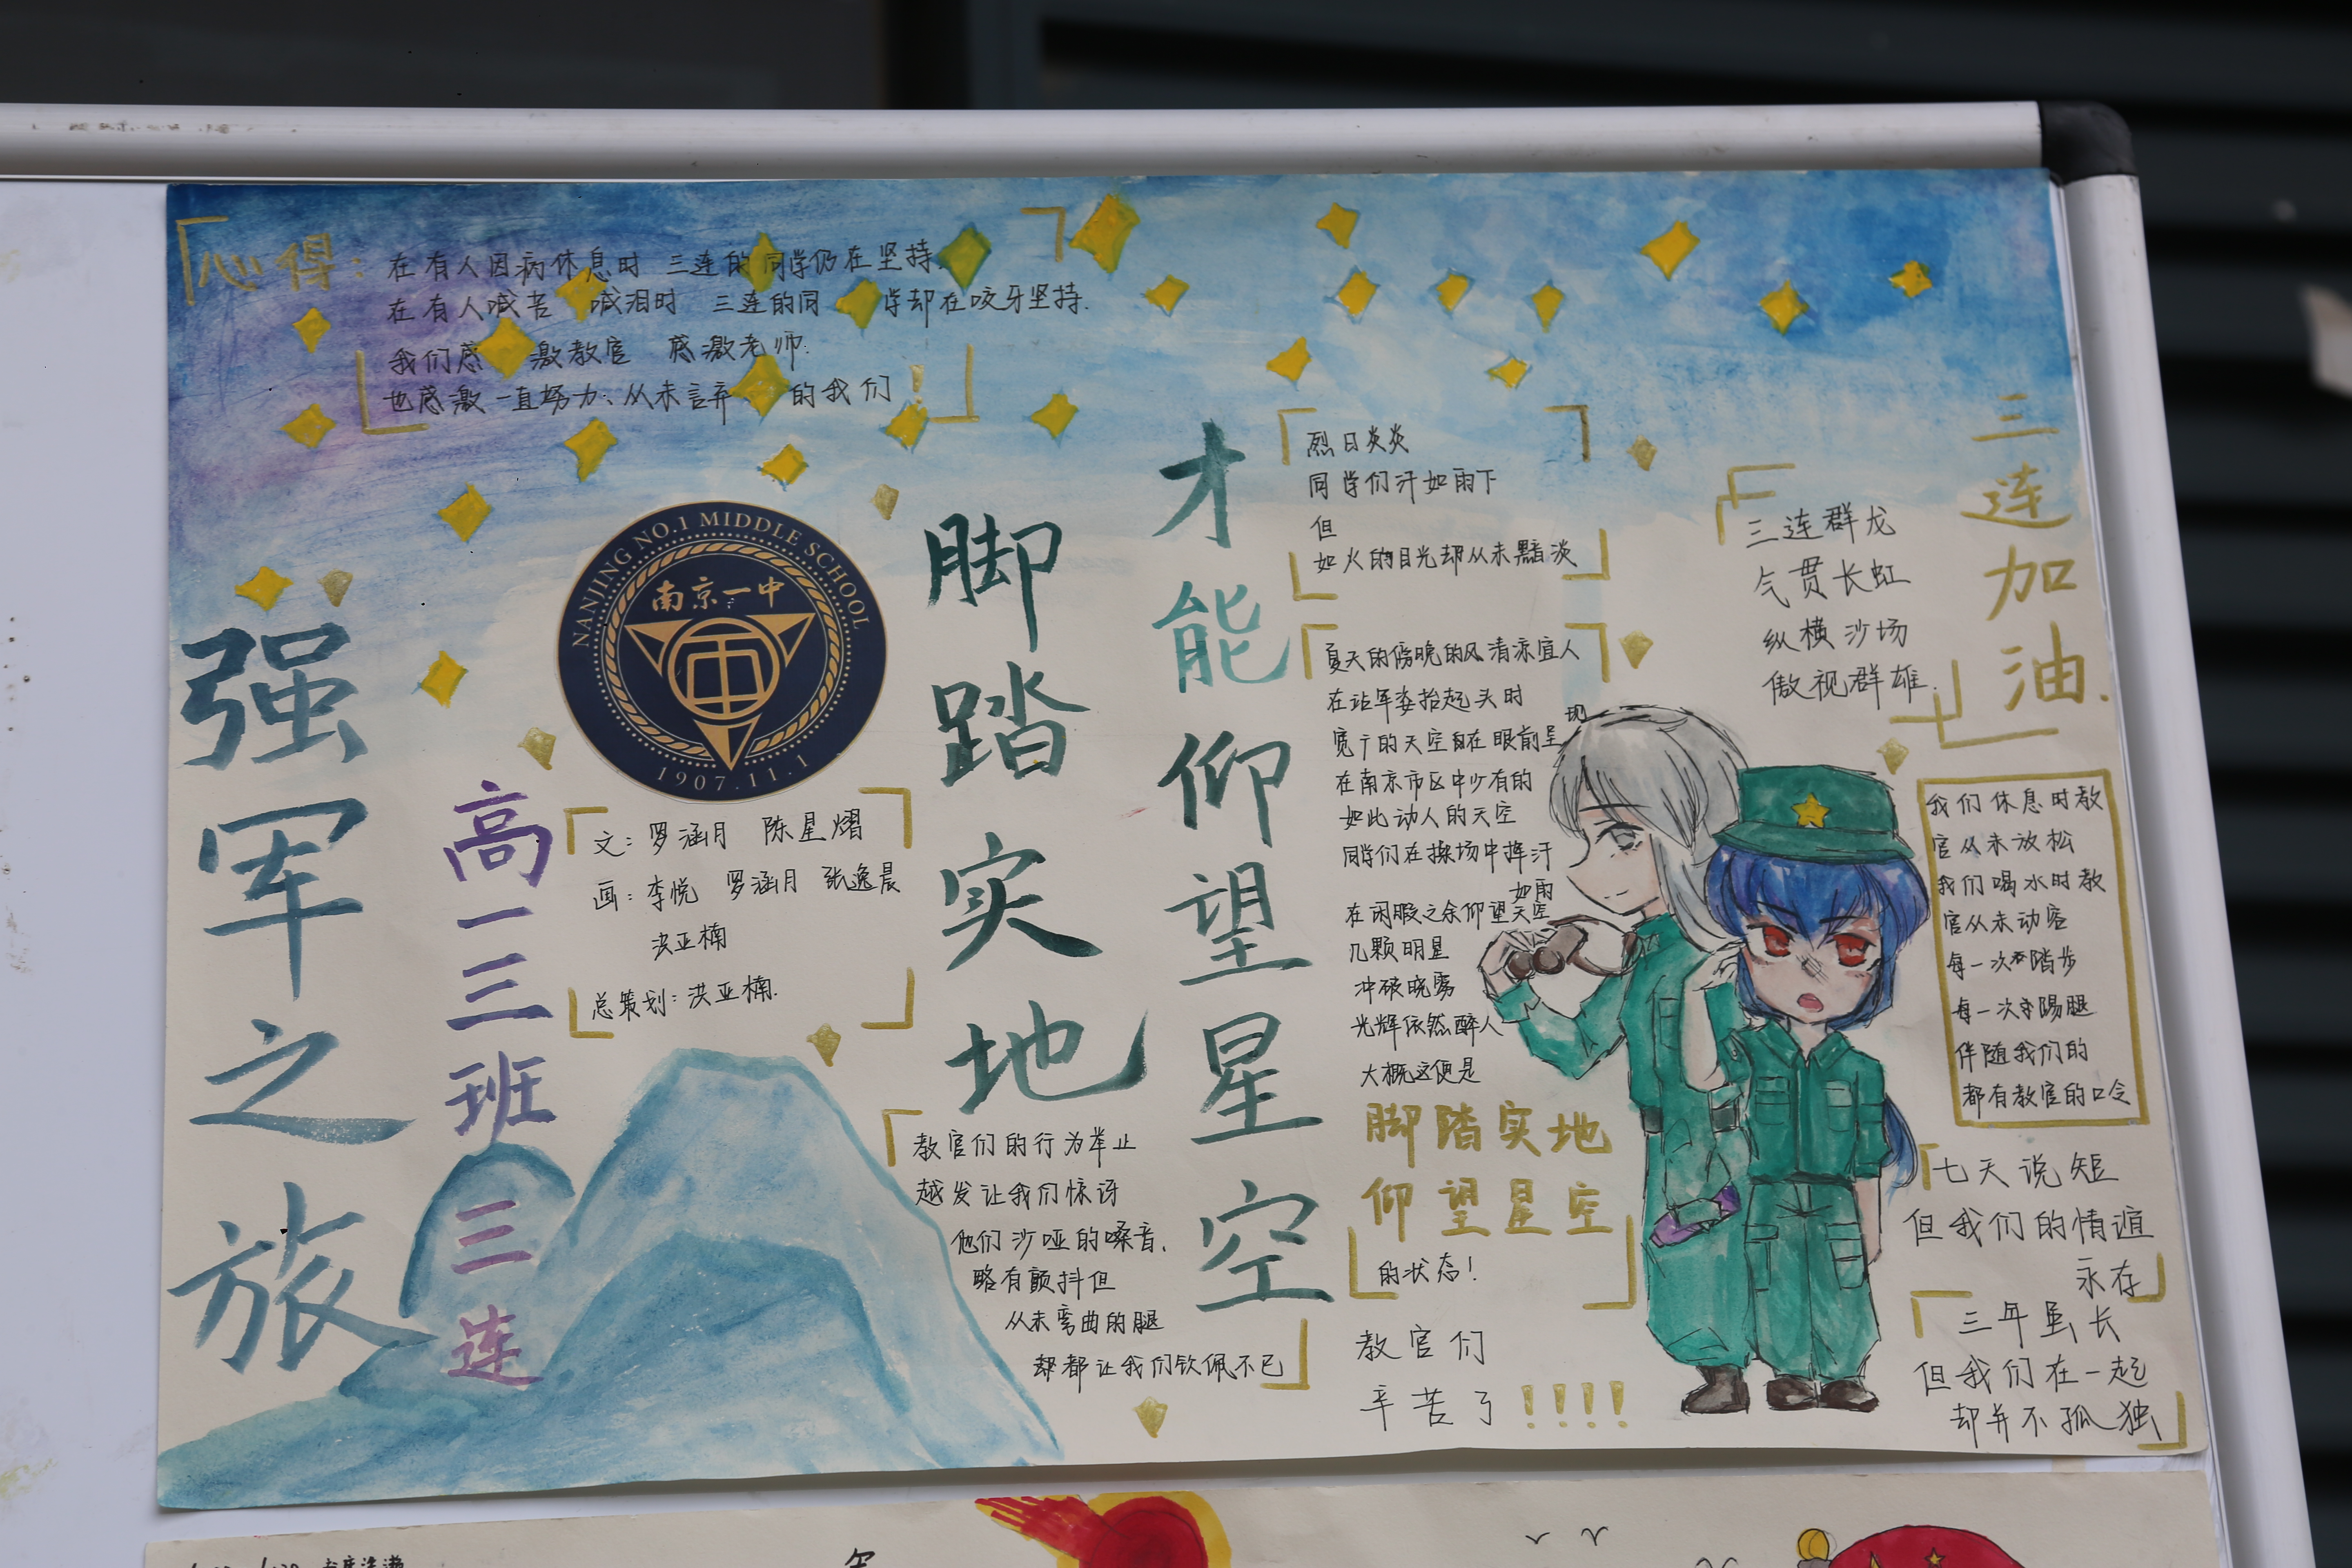 心得：
在有人因病休息时 三连的同学仍在坚持.
在有人喊苦喊泪时 三连的同学却在咬牙坚持.
我们感激教官 感激老师.
也感激一直努力、从未言弃的我们！
强军之旅
高一三班
三连
NANJING NO.1 MIDDLE SCHOOL
南京一中
1907.11.1
文：罗涵月 陈星熠
画：李悦 罗涵月 张逸晨
洪亚楠
总策划：洪亚楠.
脚踏实地
才能仰望星空
教官们的行为举止
越发让我们惊讶
他们沙哑的嗓音，
略有颤抖但
从未弯曲的腿
却都让我们钦佩不已
烈日炎炎
同学们汗如雨下
但
如火的目光却从未黯淡
夏天的傍晚的风清凉宜人
在站军姿抬起头时
宽广的天空自在眼前呈现
在南京市区中少有的
如此动人的天空
同学们在操场中挥汗如雨
在闲暇之余仰望天空
几颗明星
冲破晚雾
光辉依然醉人
大概这便是
脚踏实地
仰望星空
的状态！
教官们
辛苦了！！！！
三连加油.
三连群龙
气贯长虹
纵横沙场
傲视群雄.
我们休息时教
官从未放松
我们喝水时教
官从未动容
每一次踏步
每一次踢腿
伴随我们的
都有教官的口令
七天说短
但我们的情谊
永存
三年虽长
但我们在一起
却并不孤独